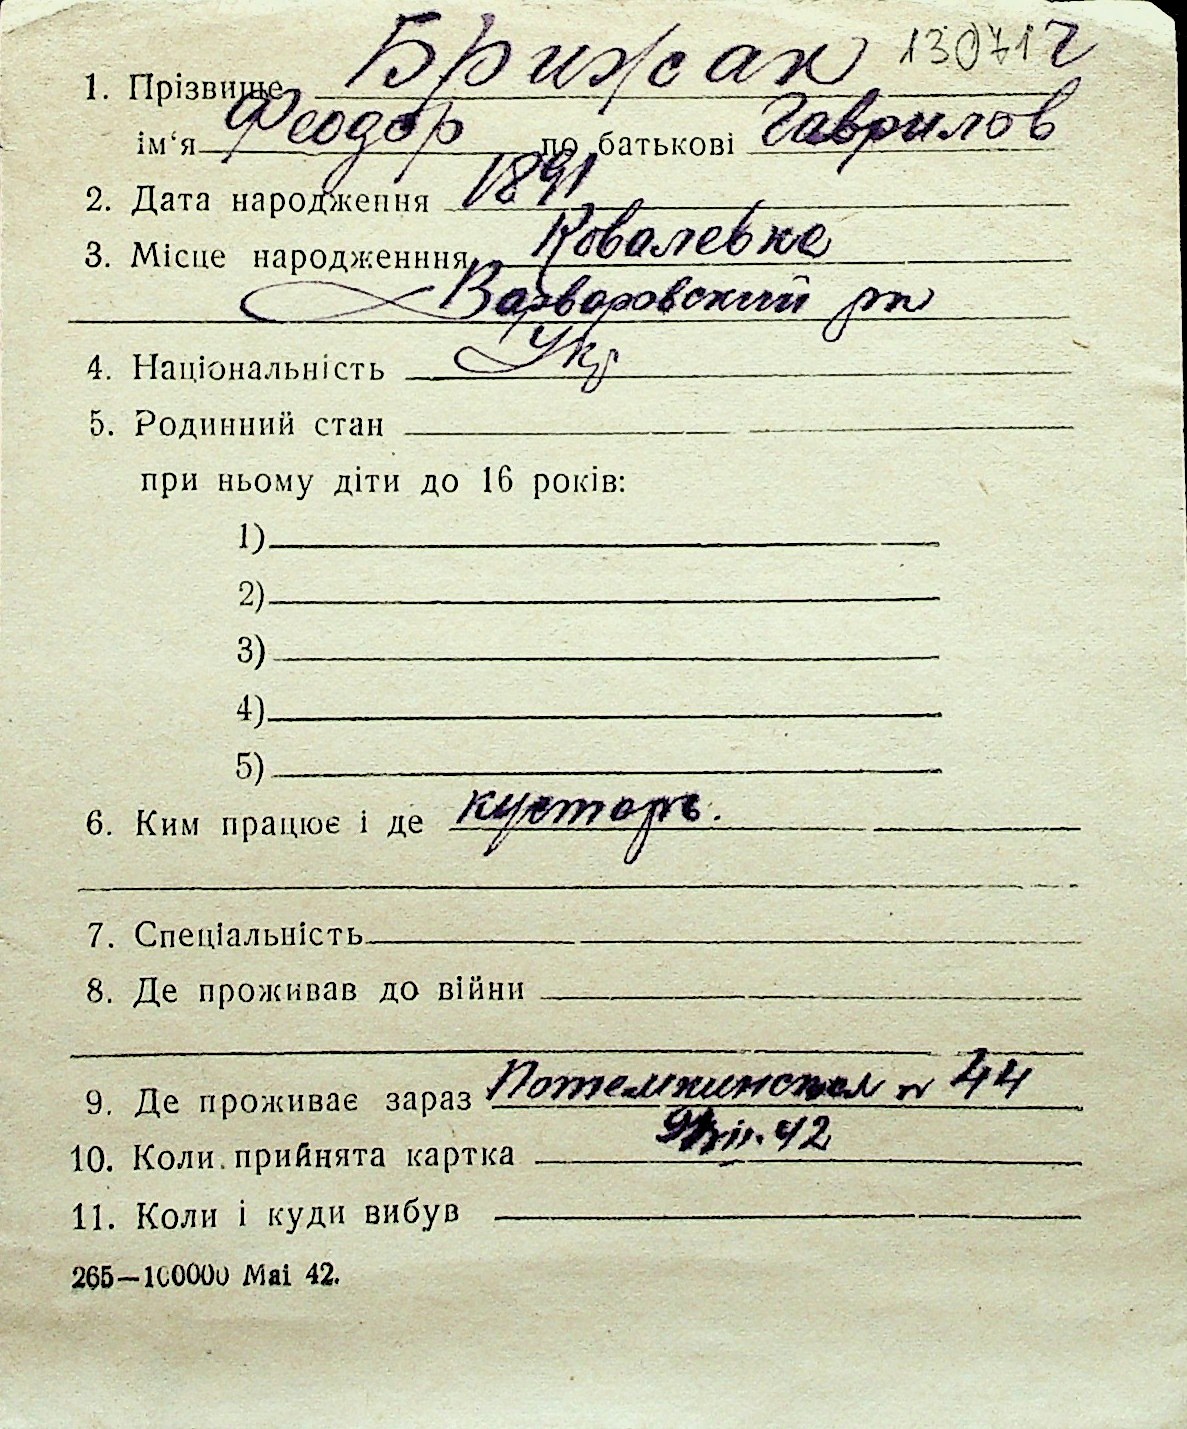 130712
1. Прізвище Брижак
ім‘я Феодор по батькові Гаврилов
2. Дата народження 1891
3. Місце народженння Ковалевка
Варваровский рн
4. Національність Укр
5. Родинний стан
при ньому діти до 16 років:
1)
2)
3)
4)
5)
6. Ким працює і де кустарь.
7. Спеціальність
8. Де проживав до війни
9. Де проживає зараз Потемкинская № 44
10. Коли прийнята картка 42
11. Коли і куди вибув
265—100000 Mai 42.